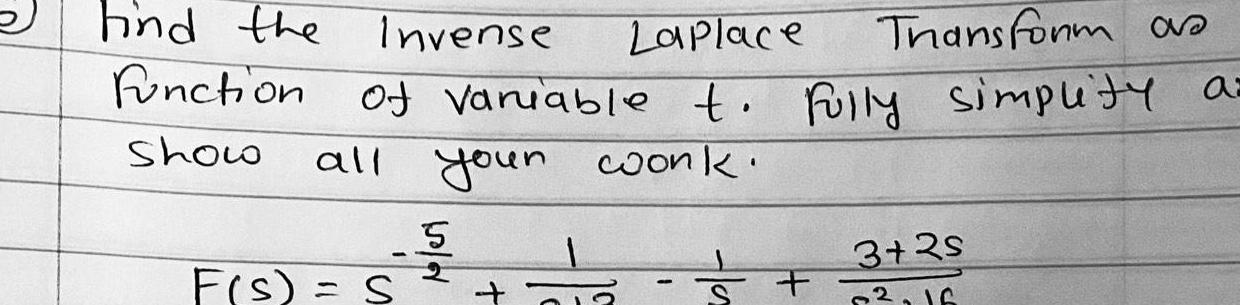 Find the Invense Laplace Transform as
function of variable t. Fully simplify
show all your work.
F(s) = s^{-5/2} + - 1/s +